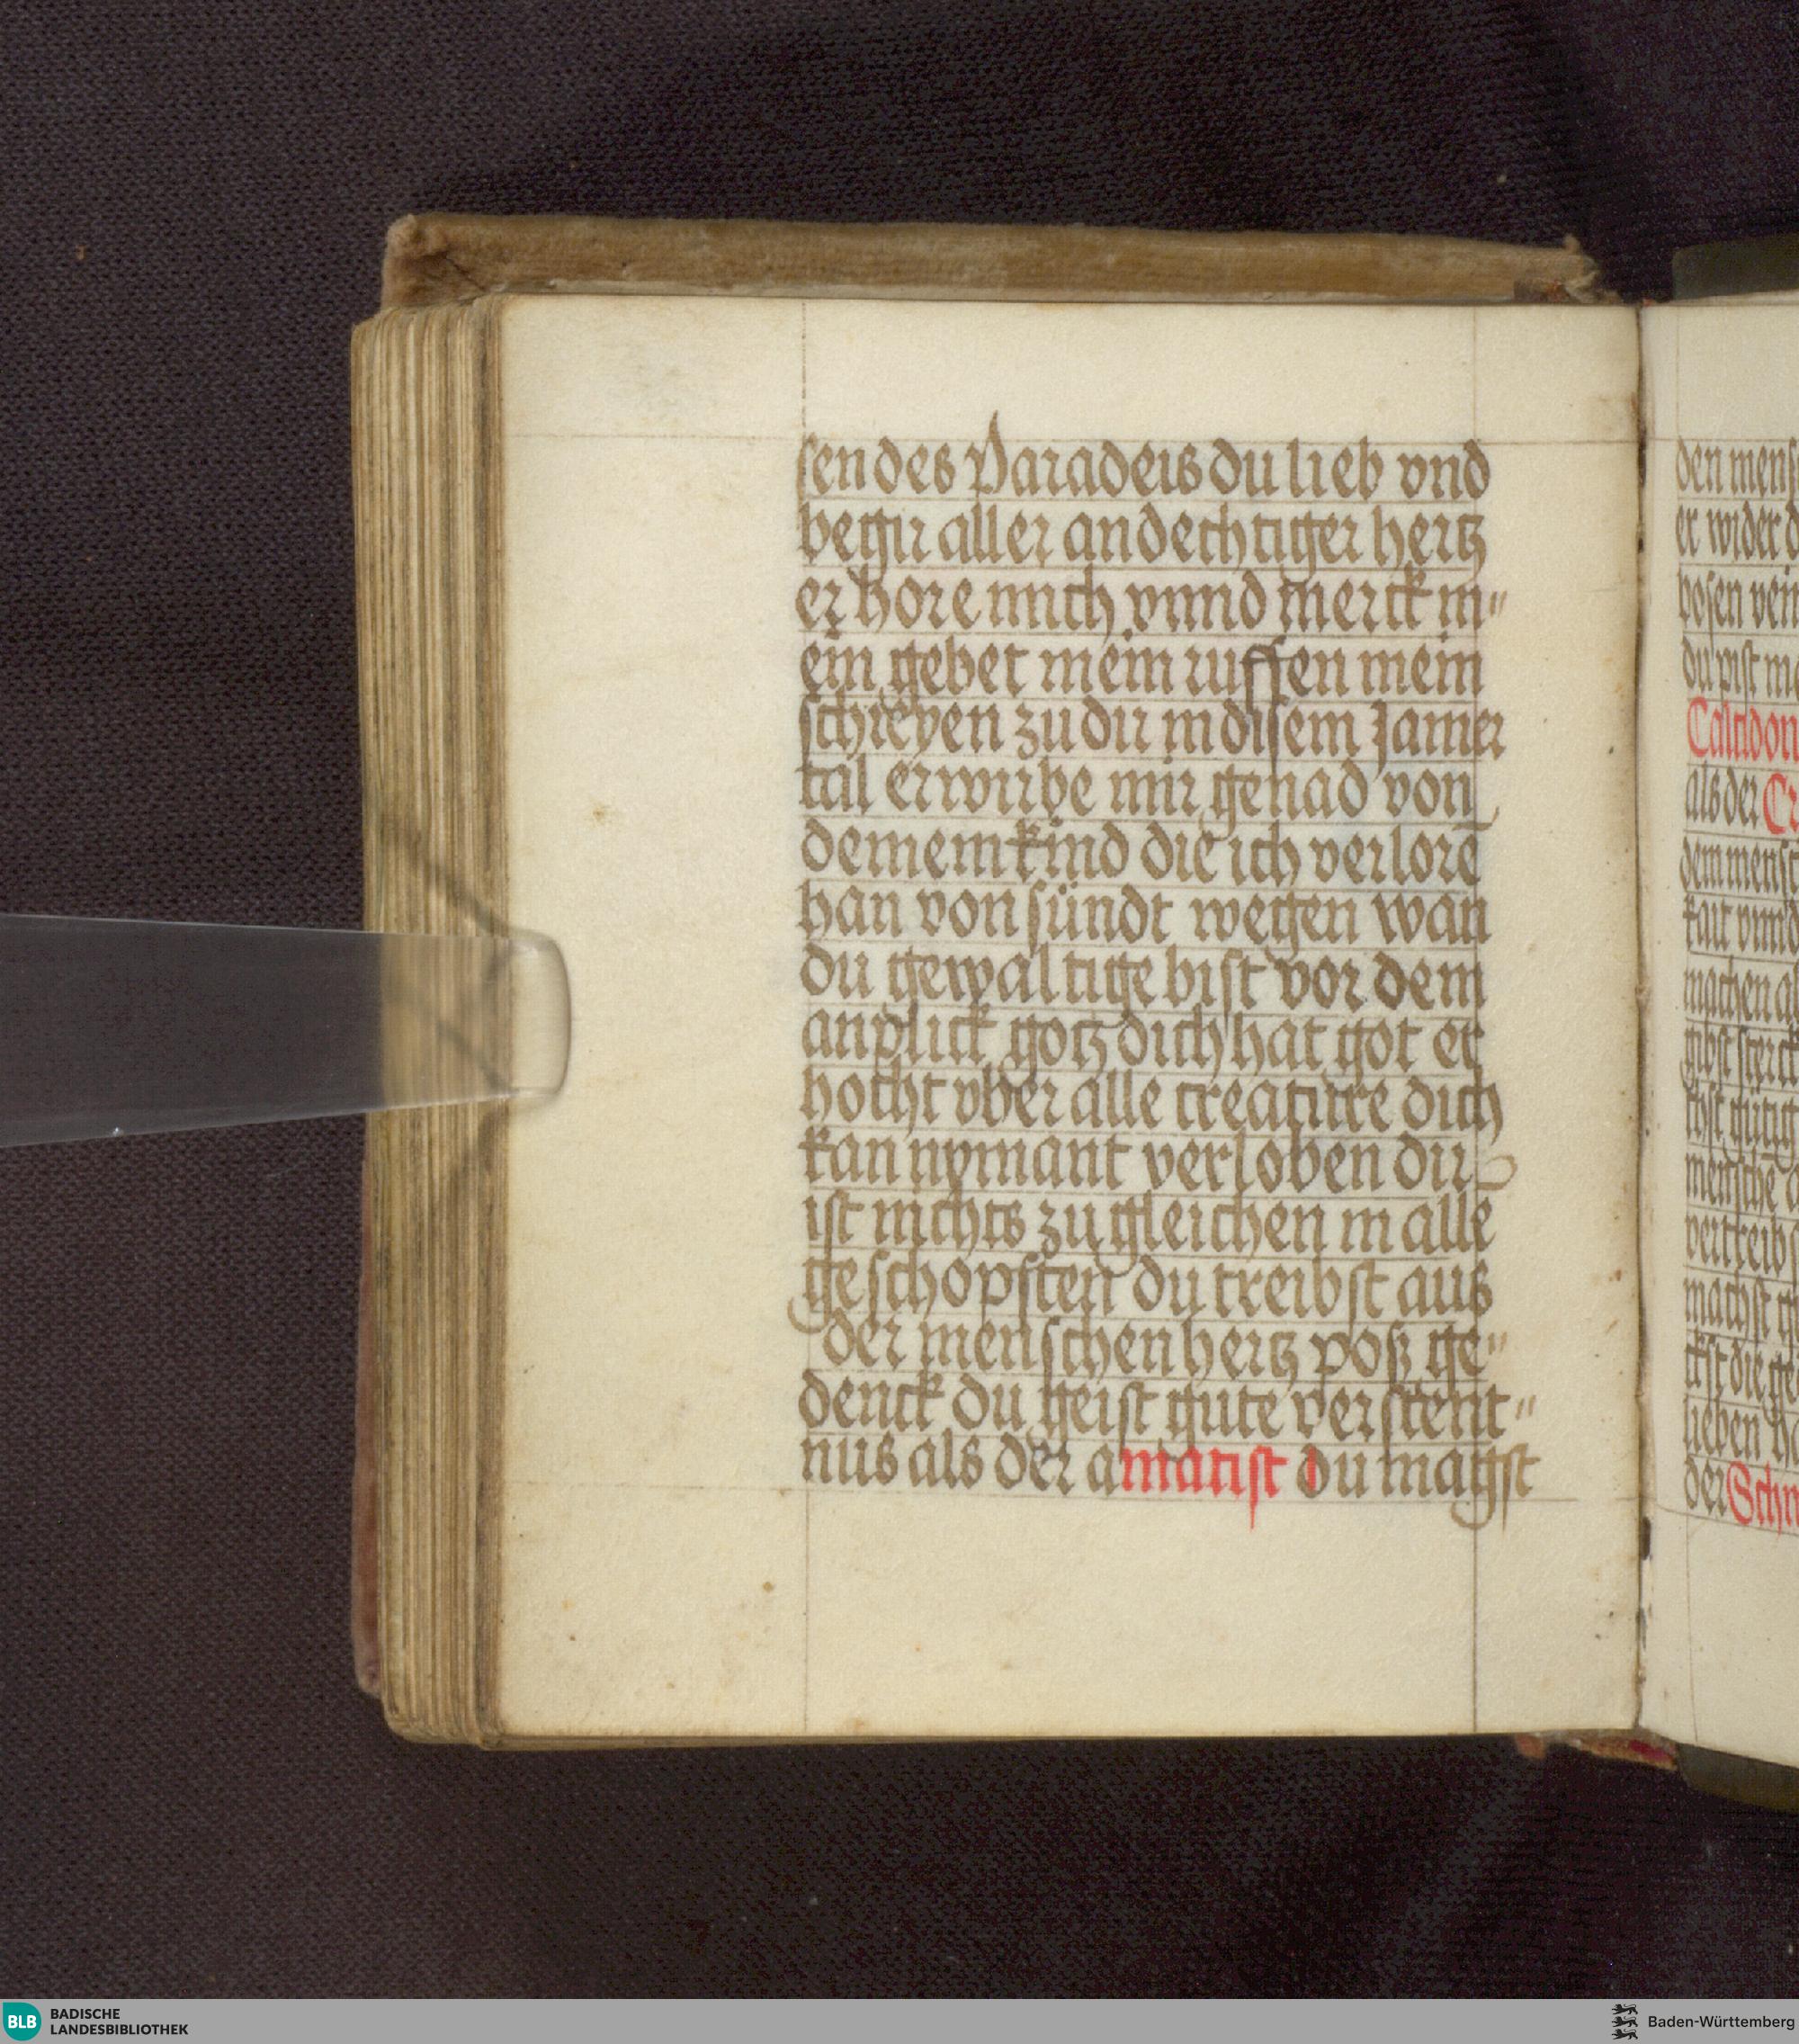 sen des Paradeis du lieb vnd
begir aller andechtiger hertz
erhore mich vnnd merck m„
ein gebet mein ruffen mein
schreyen zu dir in disem Jamer
tal erwirbe mir genad von
deinem kind die ich verlorē
han von sündt wegen wan
du gewaltige bist vor dem
anplick gotz dich hat got er
hocht vber alle creature dich
kan nymant verloben dir
ist nichts zu gleichen in alle
geschopften du treibst aus
der menschen hertz posz ge„
denck du geist gute verstent„
nus als der amatist du magst
den mens
er wider d
bosen vein
du pist m
Calcidon
als der Cr
dem mensc
kait vnnd
machen al
gibst sterck
chst gütig
menschē d
vertreib s
machst g
ckst die ge
lieben h
der Schm
BLB BADISCHE
LANDESBIBLIOTHEK
Baden-Württemberg